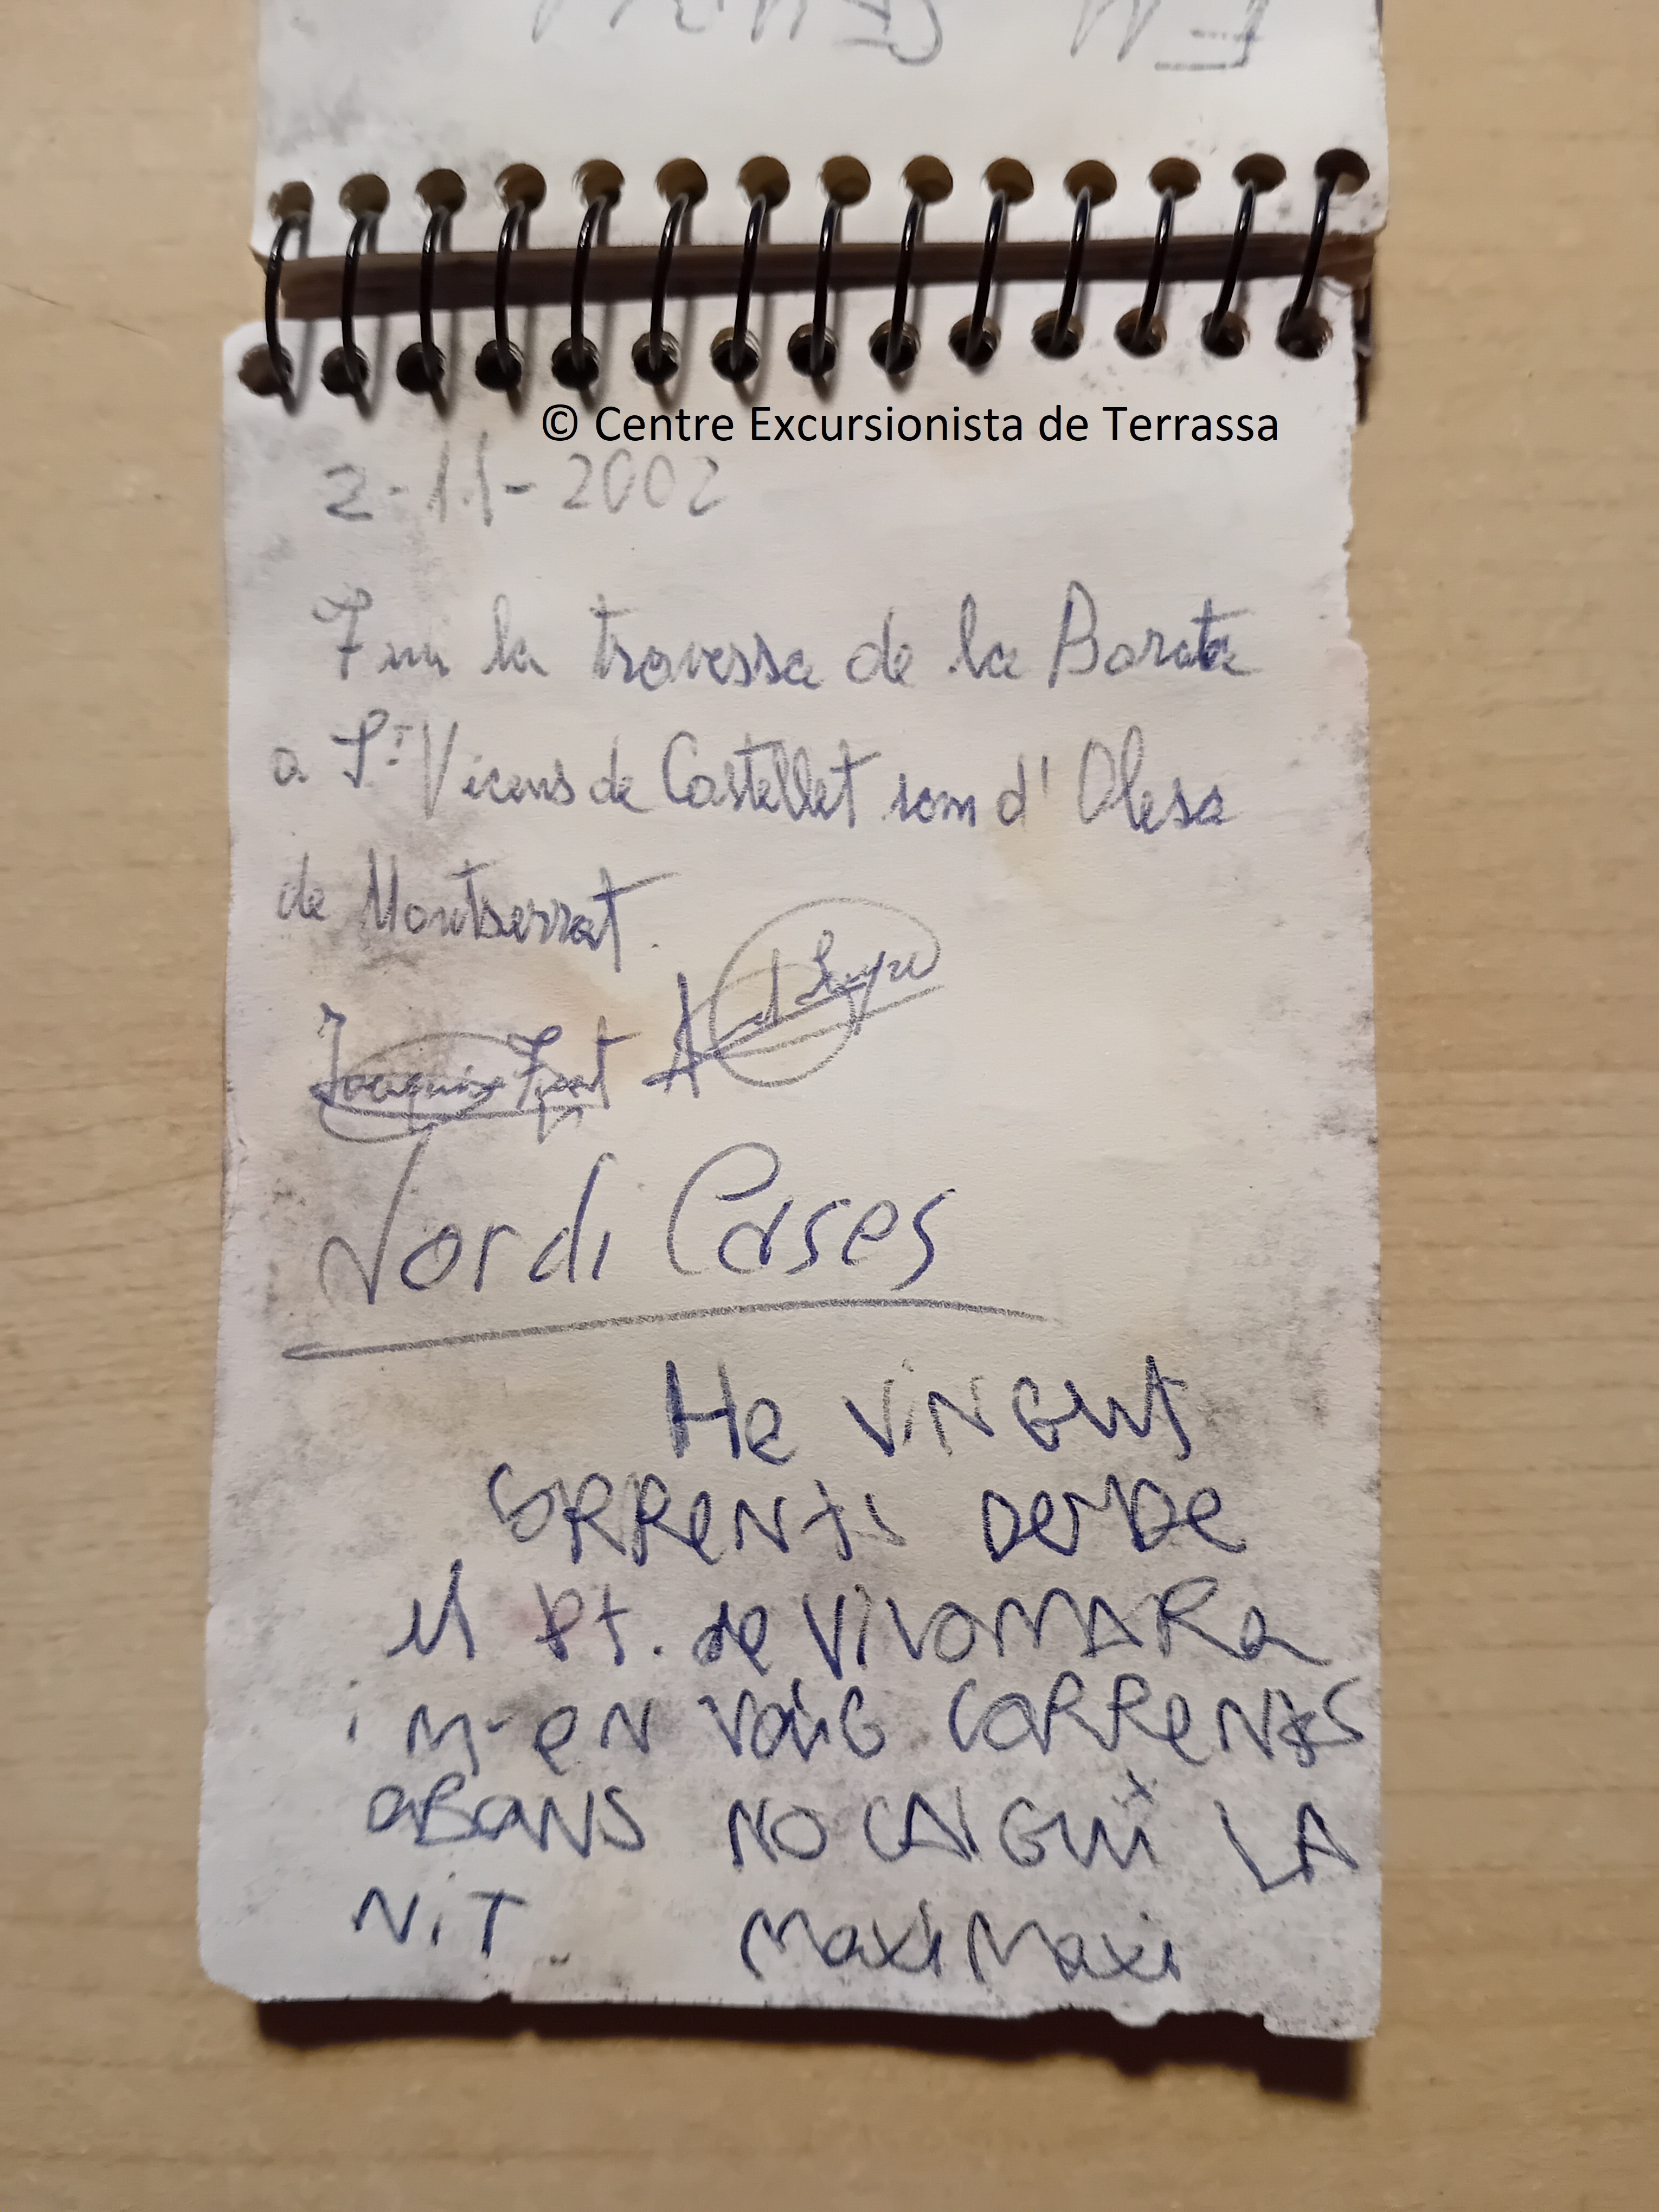 © Centre Excursionista de Terrassa
2-11-2002
Fem la travessa de la Barata
a St Vicens de Castellet som d'Olesa
de Montserrat.
Joaquim
Jordi Cases
He ViNGut
CORReNts DesDe
el Pt. de ViLOMARa
i M-eN VaiG CORReNts
aBaNS NO CAiGui LA
NiT Maxi Maxi